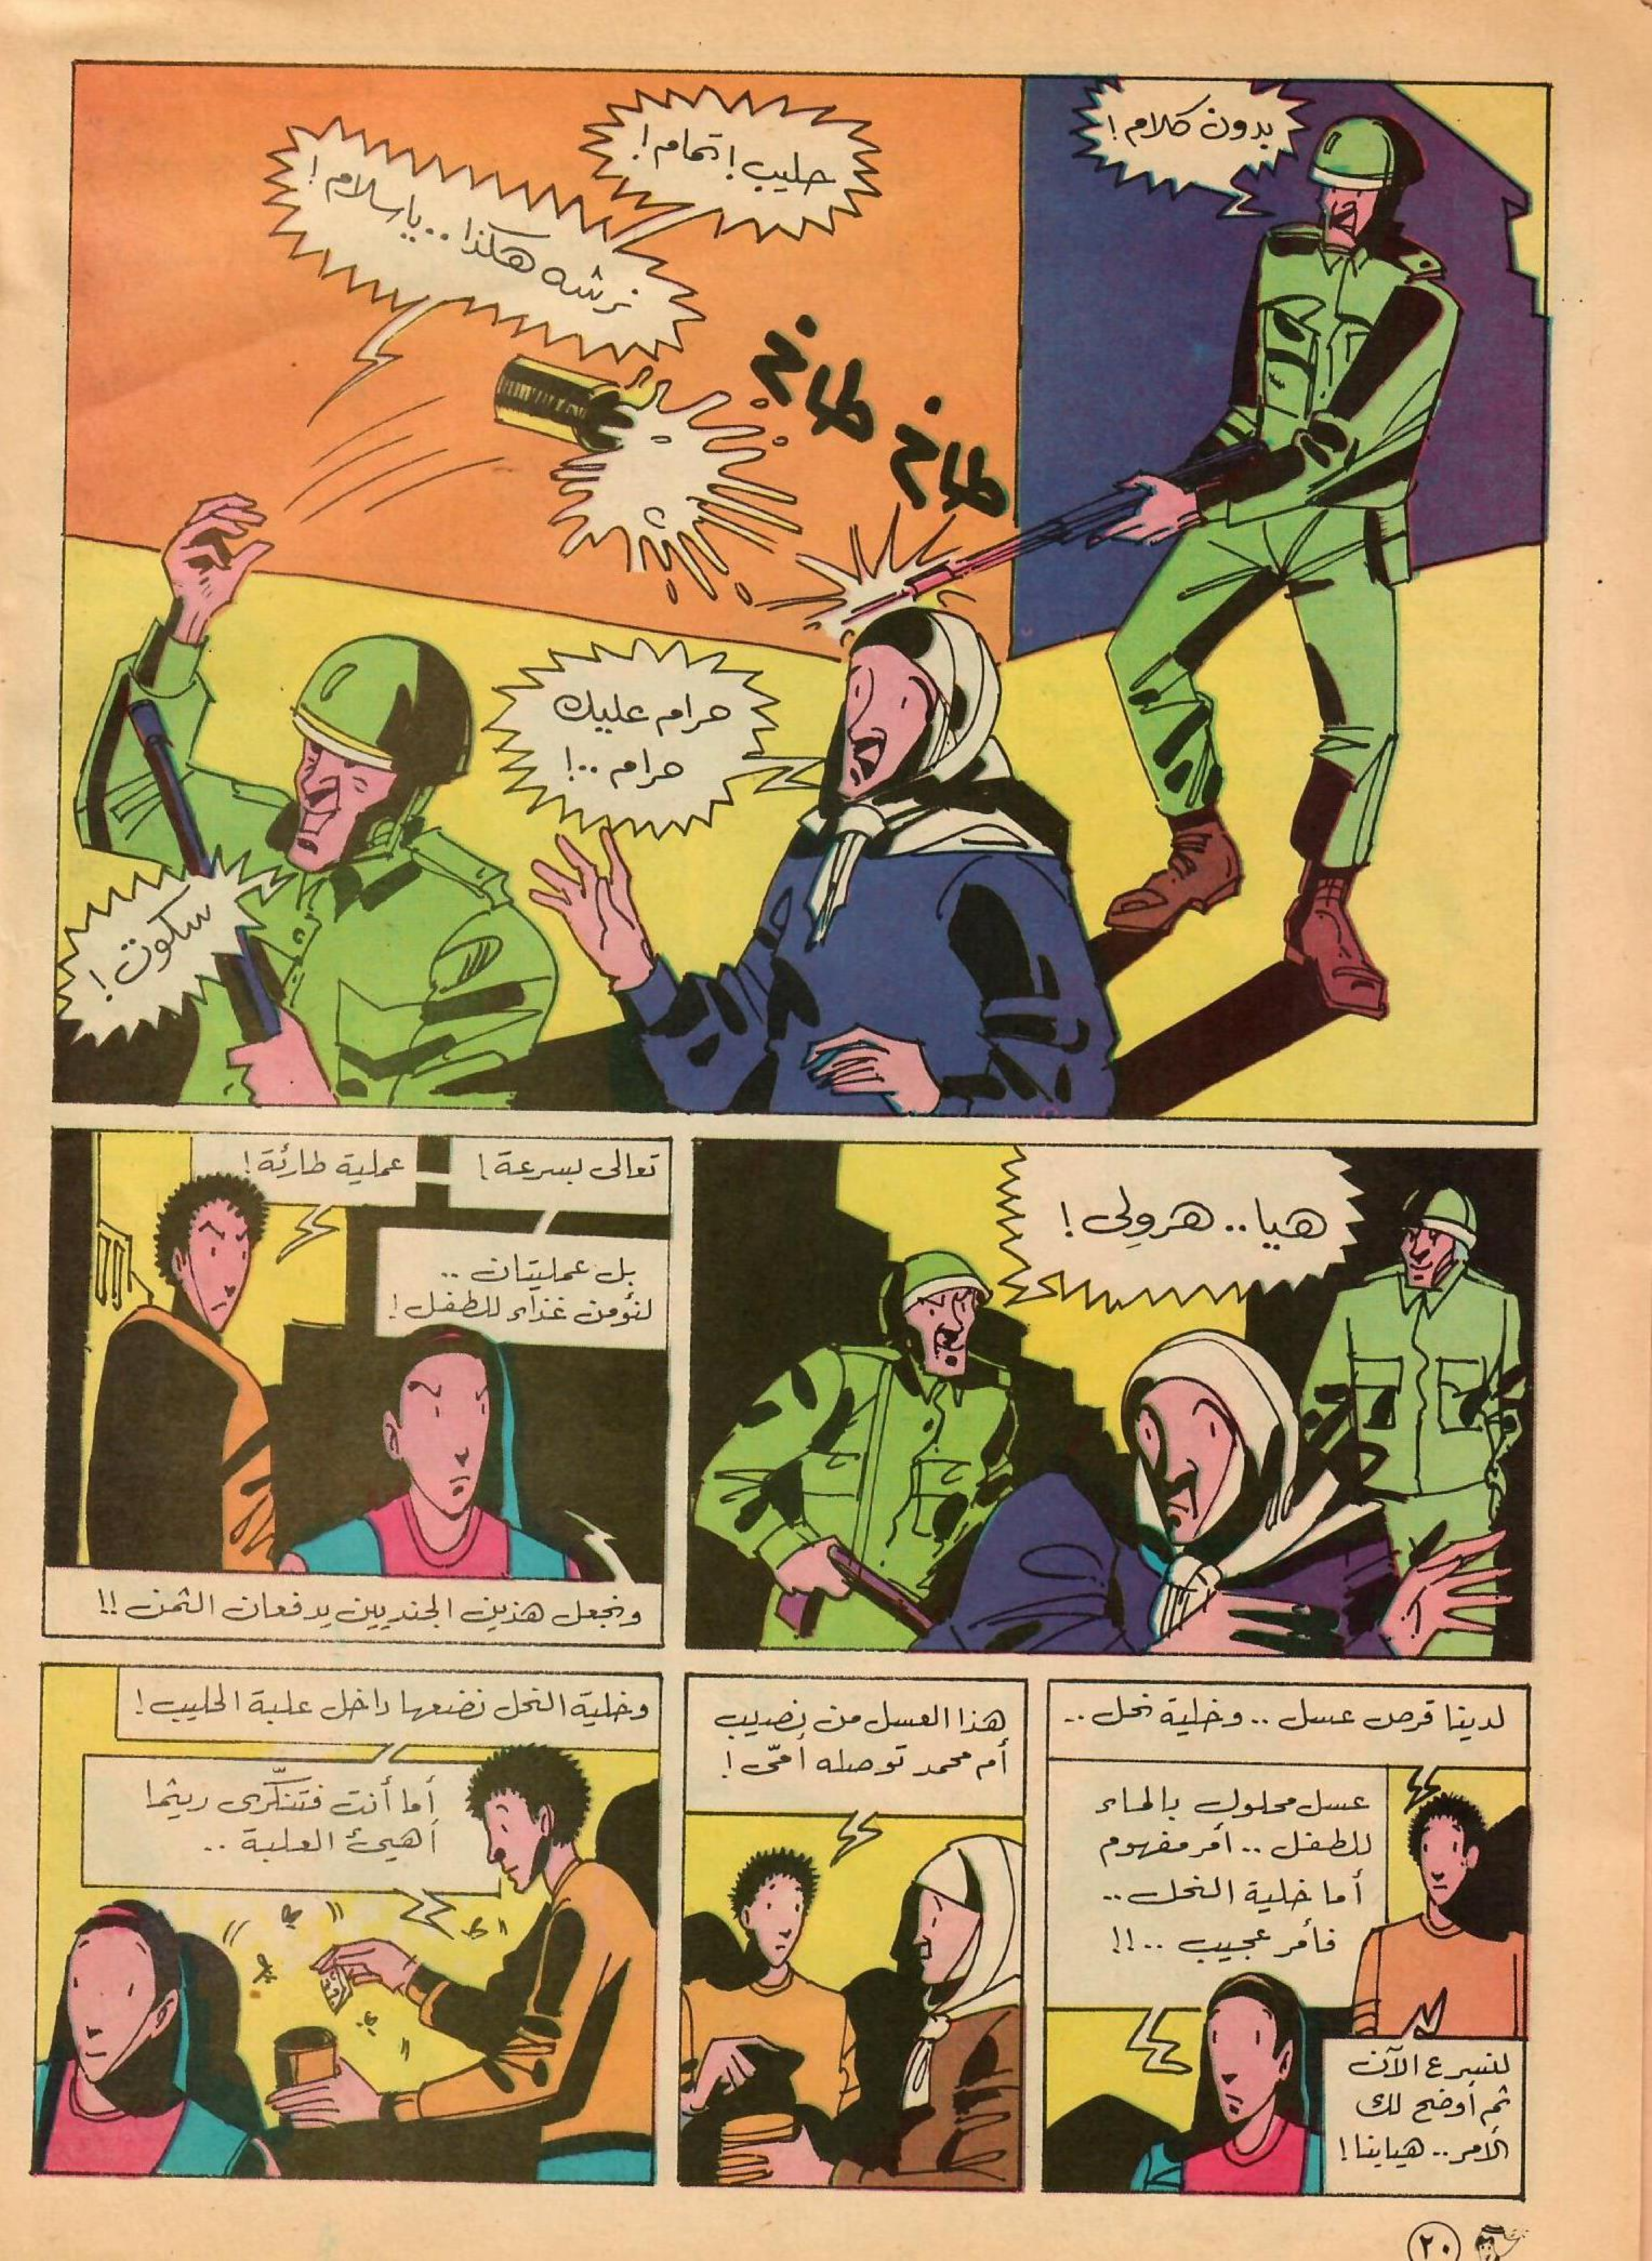 بدون كلام!
حليب! تمام!
نرشه هكذا.. يا سلام!
طاخ
طاخ
حرام عليك
حرام..!
سكوت!
هيا.. هرولي!
تعالى بسرعة!
عملية طارئة!
بل عمليتان ..
لنؤمن غذاء للطفل!
ونجعل هذين الجنديين يدفعان الثمن!!
لدينا قرص عسل .. وخلية نحل ..
عسل محلول بالماء
للطفل .. أمر مفهوم
أما خلية النحل ..
فأمر عجيب ..!!
لنسرع الآن
ثم أوضح لك
الأمر.. هيا بنا!
هذا العسل من نصيب
أم محمد توصله أمّى!
وخلية النحل نضعها داخل علبة الحليب!
أما أنت فتتنكّرى ريثما
أهيئ العلبة ..
٢٠